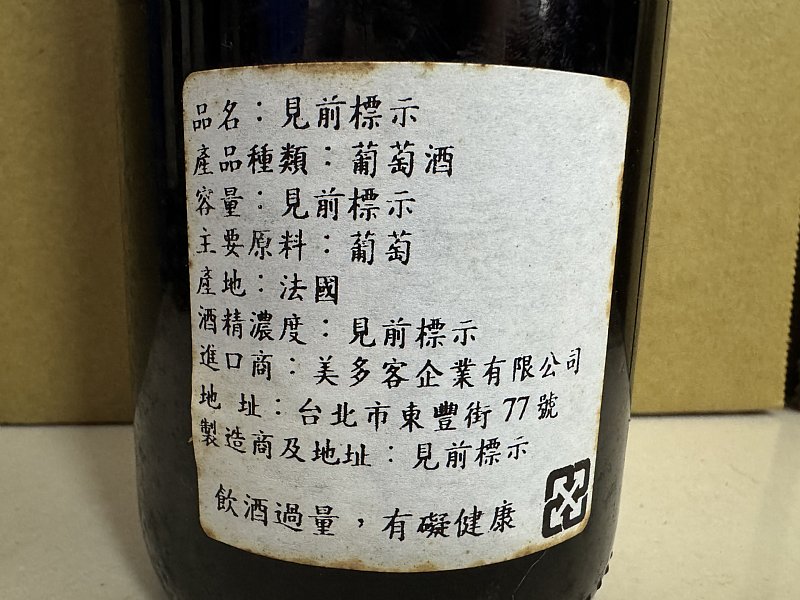 品名：見前標示
產品種類：葡萄酒
容量：見前標示
主要原料：葡萄
產地：法國
酒精濃度：見前標示
進口商：美多客企業有限公司
地 址：台北市東豐街 77 號
製造商及地址：見前標示
飲酒過量，有礙健康